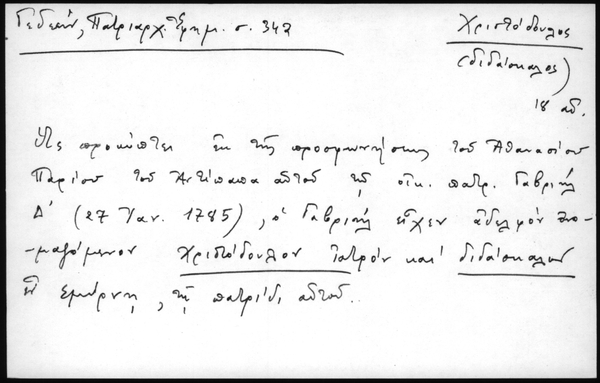 Γεδεών, Πατριαρχ. Ἐφημ. σ. 342
Χριστόδουλος
(διδάσκαλος)
18 αἰ.
Ὡς προκύπτει ἐκ τῆς προσφωνήσεως τοῦ Ἀθανασίου
Παρίου τοῦ Ἀντίπαπα αὐτοῦ τῷ οἰκ. πατρ. Γαβριὴλ
Δ' (27 Ἰαν. 1785), ὁ Γαβριὴλ εἶχεν ἀδελφὸν ὀνο-
-μαζόμενον Χριστόδουλον ἰατρὸν καὶ διδάσκαλον
ἐν Σμύρνῃ, τῇ πατρίδι αὐτοῦ.